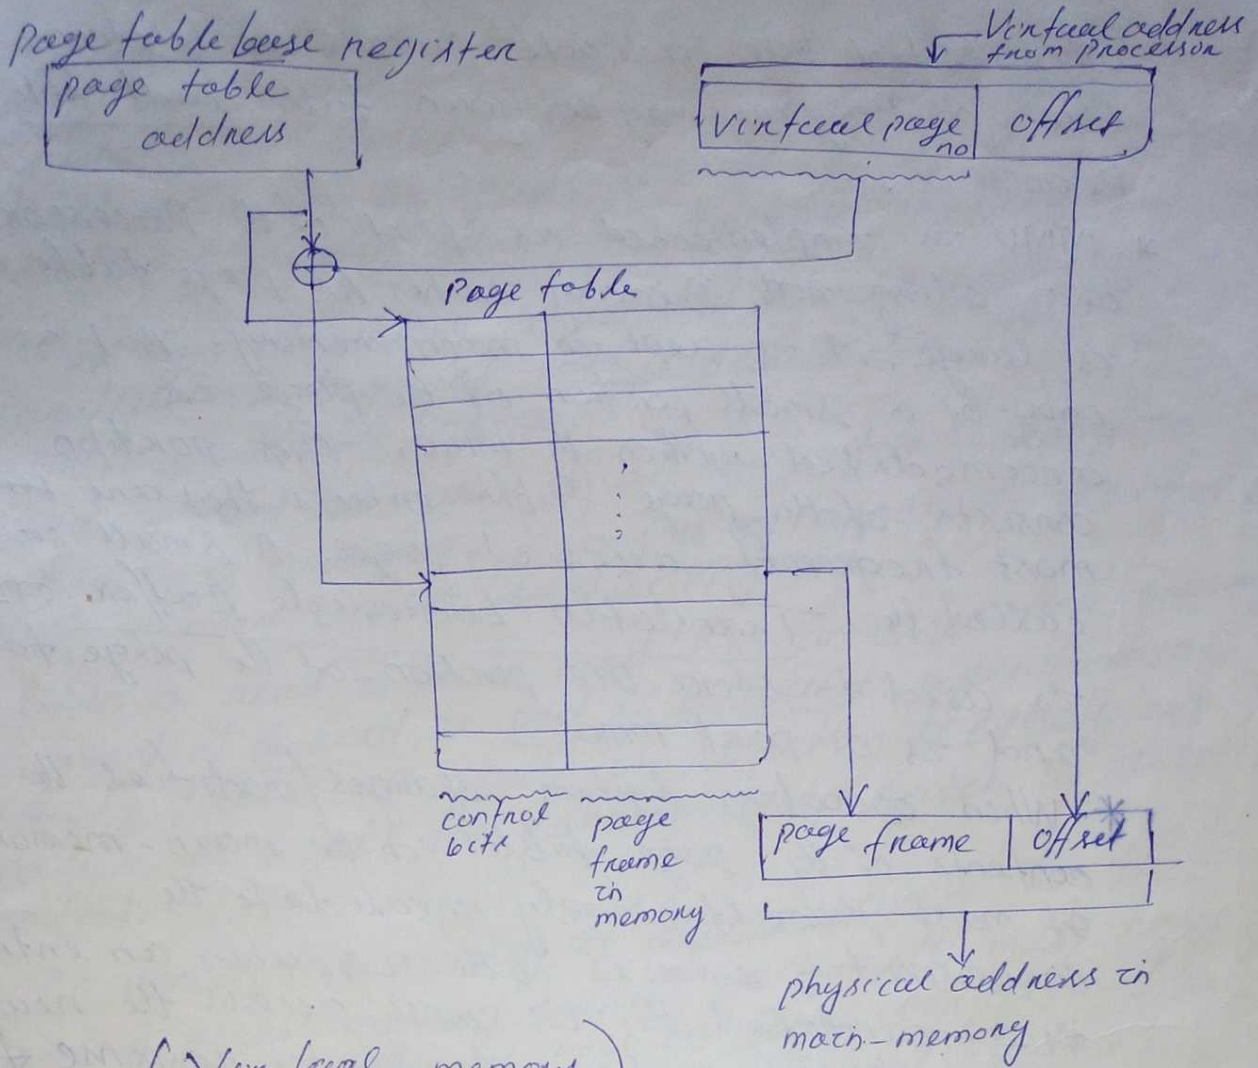 Page table base register
page table
address
Virtual address
from processor
Virtual page
no
offset
Page table
control
bits
page
frame
in
memory
page frame
offset
physical address in
main-memory
memory